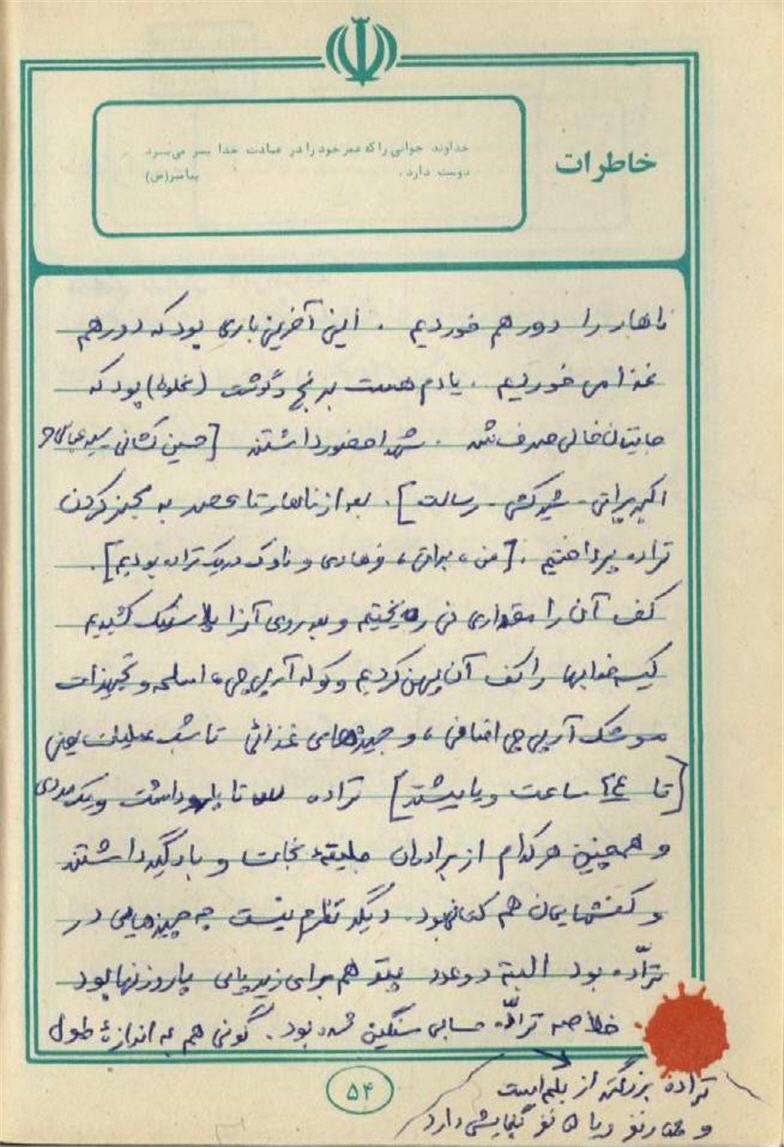 خاطرات
خداوند جوانی را که عمر خود را در عبادت خدا بسر می‌برد
دوست دارد. پیامبر(ص)
ناهار را دور هم خوردیم . این آخرین باری بود که دور هم
غذا می خوردیم . یادم هست برنج و گوشت (مخلوط) بود که
جایتان خالی صرف شد . شهدا حضور داشتند [حسین کشانی
اکبر براتی - - رسالت] . بعد از ناهار تا عصر به مجهز کردن
تراده پرداختیم . [من ، براتی ، فرهادی و در یک تراده بودیم] .
کف آن را مقداری نی ریختیم و بعد روی آنرا پلاستیک کشیدیم
کیسه خوابها را کف آن پهن کردیم و کوله آرپی جی ، اسلحه و تجهیزات
موشک آرپی جی اضافی ، و جیره‌های غذائی تا شب عملیات یعنی
[تا ۲۴ ساعت و یا بیشتر] تراده تا پارو داشت و یک
و همچنین هرکدام از برادران جلیقهٔ نجات و بادگیر داشتند
و کفشهایمان هم کتانی بود . دیگر نظرم نیست چه چیزهایی در
تراّده بود البته دو عدد پتو هم برای زیر پای پاروزنها بود
خلاصه تراّده حسابی سنگین شده بود . گونی هم به اندازهٔ طول
تراده بزرگتر از بلم است
و چهار نفر و یا ۵ نفر گنجایش دارد
۵۴